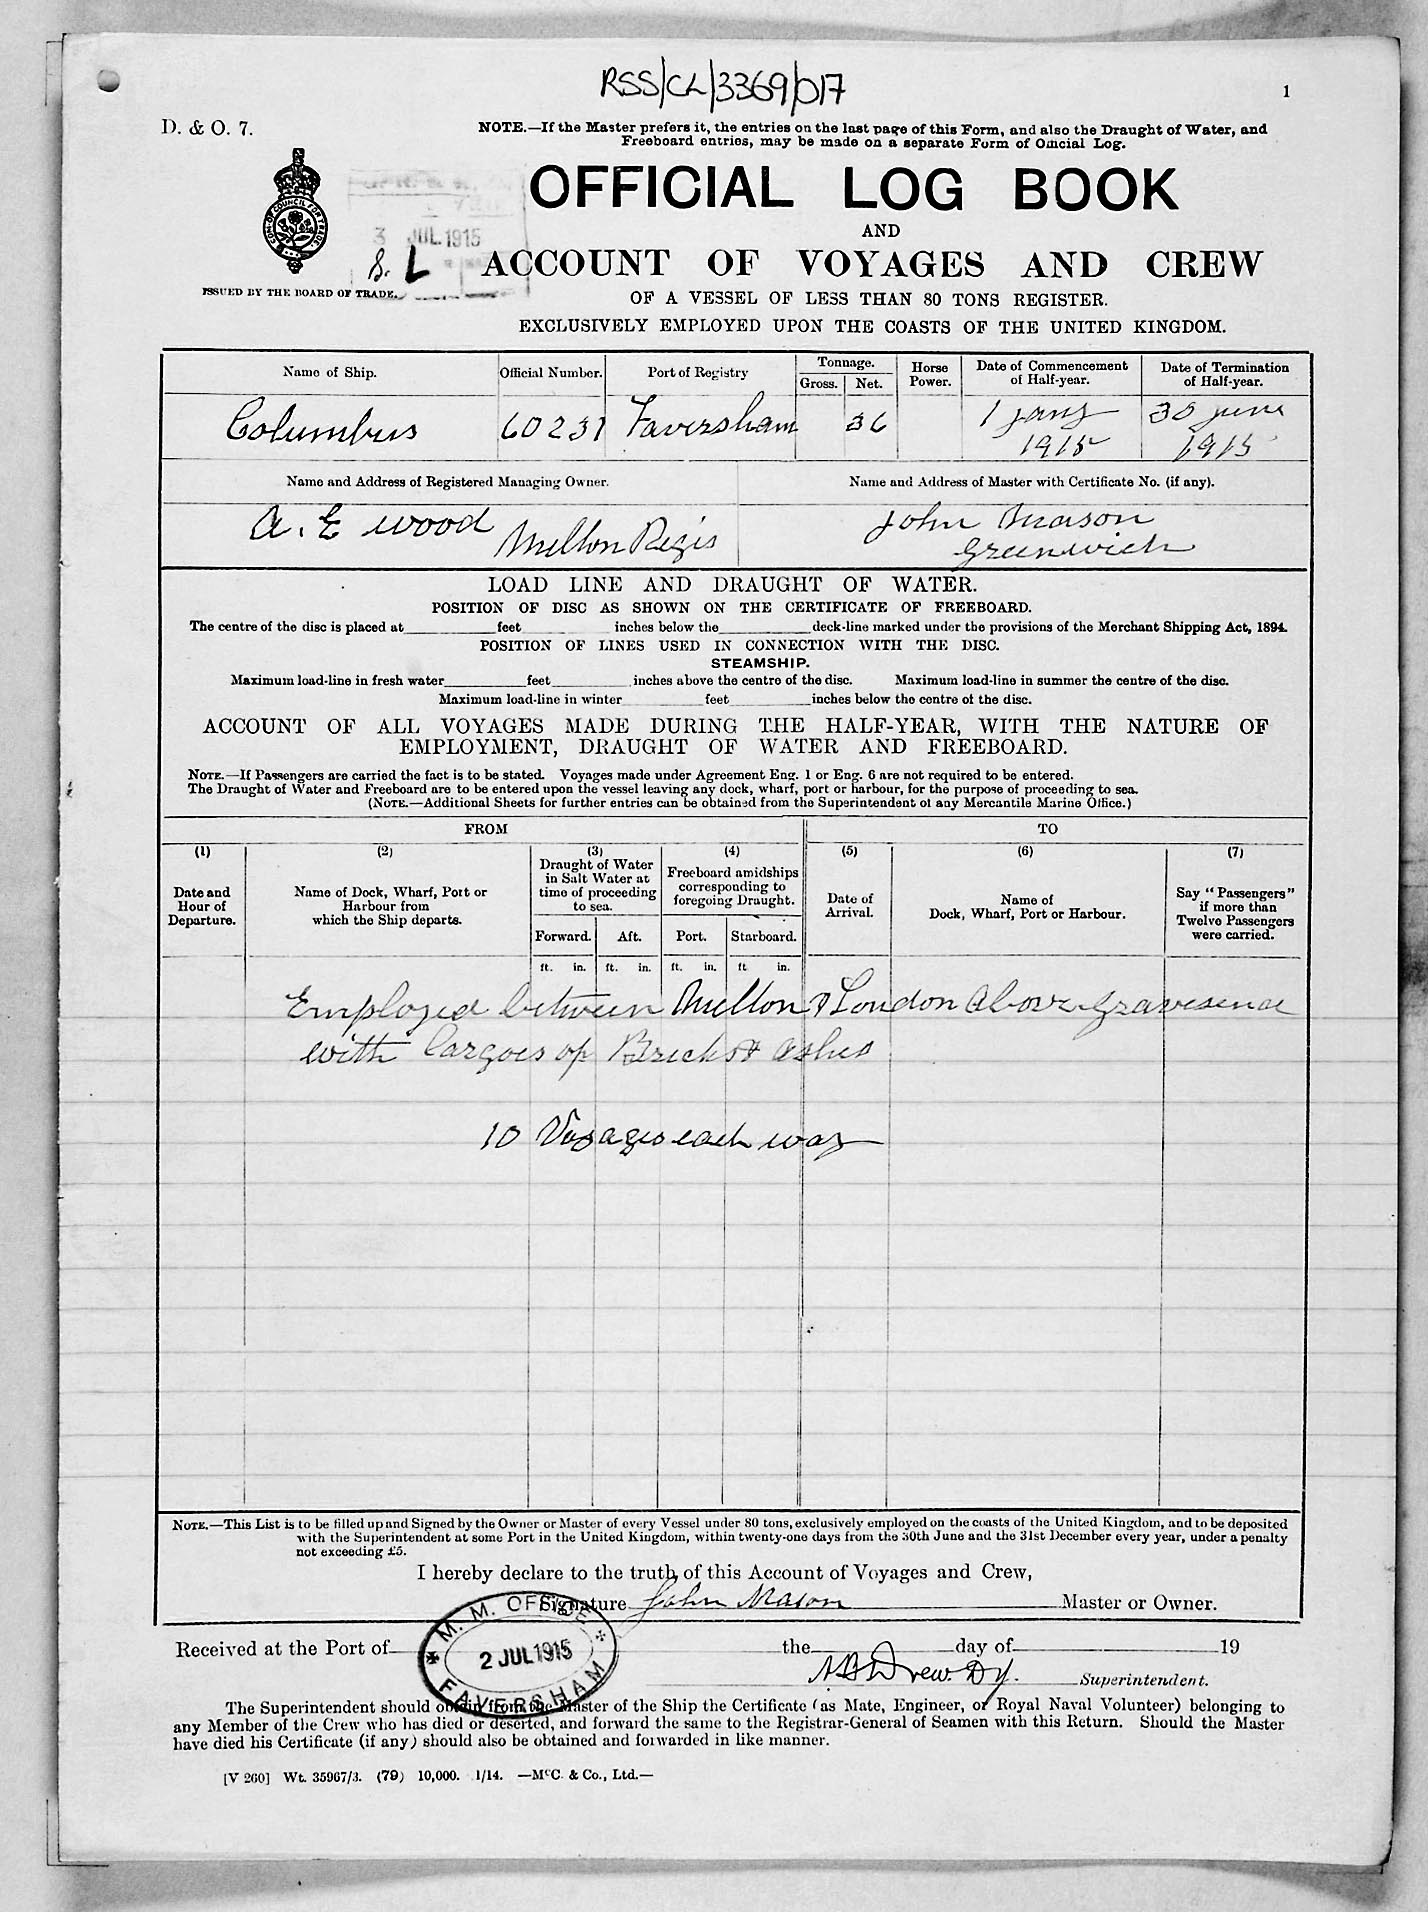 RSS/CL/3369/017
1
D. & O. 7.
NOTE.—If the Master prefers it, the entries on the last page of this Form, and also the Draught of Water, and
Freeboard entries, may be made on a separate Form of Official Log.
OFFICIAL LOG BOOK
AND
ACCOUNT OF VOYAGES AND CREW
OF A VESSEL OF LESS THAN 80 TONS REGISTER.
EXCLUSIVELY EMPLOYED UPON THE COASTS OF THE UNITED KINGDOM.
COM. OF COUNCIL FOR TRADE
ISSUED BY THE BOARD OF TRADE.
3 JUL.1915
Name of Ship. Official Number. Port of Registry Tonnage. Horse Power. Date of Commencement of Half-year. Date of Termination of Half-year.
Gross. Net.
Columbus 60231 Faversham 36 1 Jany 1915 30 June 1915
Name and Address of Registered Managing Owner. Name and Address of Master with Certificate No. (if any).
A. E Wood Milton Regis John Mason
Greenwich
LOAD LINE AND DRAUGHT OF WATER.
POSITION OF DISC AS SHOWN ON THE CERTIFICATE OF FREEBOARD.
The centre of the disc is placed at feet inches below the deck-line marked under the provisions of the Merchant Shipping Act, 1894.
POSITION OF LINES USED IN CONNECTION WITH THE DISC.
STEAMSHIP.
Maximum load-line in fresh water feet inches above the centre of the disc. Maximum load-line in summer the centre of the disc.
Maximum load-line in winter feet inches below the centre of the disc.
ACCOUNT OF ALL VOYAGES MADE DURING THE HALF-YEAR, WITH THE NATURE OF
EMPLOYMENT, DRAUGHT OF WATER AND FREEBOARD.
NOTE.—If Passengers are carried the fact is to be stated. Voyages made under Agreement Eng. 1 or Eng. 6 are not required to be entered.
The Draught of Water and Freeboard are to be entered upon the vessel leaving any dock, wharf, port or harbour, for the purpose of proceeding to sea.
(NOTE.—Additional Sheets for further entries can be obtained from the Superintendent of any Mercantile Marine Office.)
FROM TO
(1) (2) (3) (4) (5) (6) (7)
Date and Hour of Departure. Name of Dock, Wharf, Port or Harbour from which the Ship departs. Draught of Water in Salt Water at time of proceeding to sea. Freeboard amidships corresponding to foregoing Draught. Date of Arrival. Name of Dock, Wharf, Port or Harbour. Say "Passengers" if more than Twelve Passengers were carried.
Forward. Aft. Port. Starboard.
ft. in. ft. in. ft. in. ft in.
Employed between Milton & London Above Gravesend
with Cargoes of Bricks & Ashes
10 Voyages each way
NOTE.—This List is to be filled up and Signed by the Owner or Master of every Vessel under 80 tons, exclusively employed on the coasts of the United Kingdom, and to be deposited
with the Superintendent at some Port in the United Kingdom, within twenty-one days from the 30th June and the 31st December every year, under a penalty
not exceeding £5.
I hereby declare to the truth of this Account of Voyages and Crew,
Signature John Mason Master or Owner.
M. M. OFFICE
2 JUL 1915
FAVERSHAM
Received at the Port of the day of 19
Superintendent.
The Superintendent should obtain from the Master of the Ship the Certificate (as Mate, Engineer, or Royal Naval Volunteer) belonging to
any Member of the Crew who has died or deserted, and forward the same to the Registrar-General of Seamen with this Return. Should the Master
have died his Certificate (if any) should also be obtained and forwarded in like manner.
[V 260] Wt. 35967/3. (79) 10,000. 1/14. —McC. & Co., Ltd.—